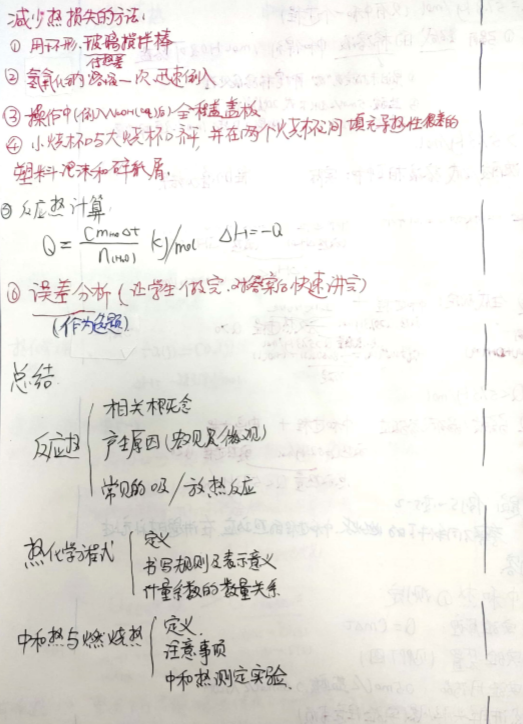 减少热损失的方法:
① 用环形玻璃搅拌棒
② 氢氧化钠溶液一次迅速倒入
③ 操作中(倒入NaOH(aq)后)全程盖盖板
④ 小烧杯口与大烧杯口齐, 并在两个烧杯之间填充导热性很差的
塑料泡沫和碎纸屑.
⑤ 反应热计算.
Q = cm△t / n(H₂O) kJ/mol △H=-Q
⑥ 误差分析 (让学生做完.对答案后快速讲完)
(作为选题)
总结
反应热 相关概念
产生原因(宏观及微观)
常见的吸/放热反应
热化学方程式 定义
书写规则及表示意义
计量系数的数量关系
中和热与燃烧热 定义.
注意事项
中和热测定实验.